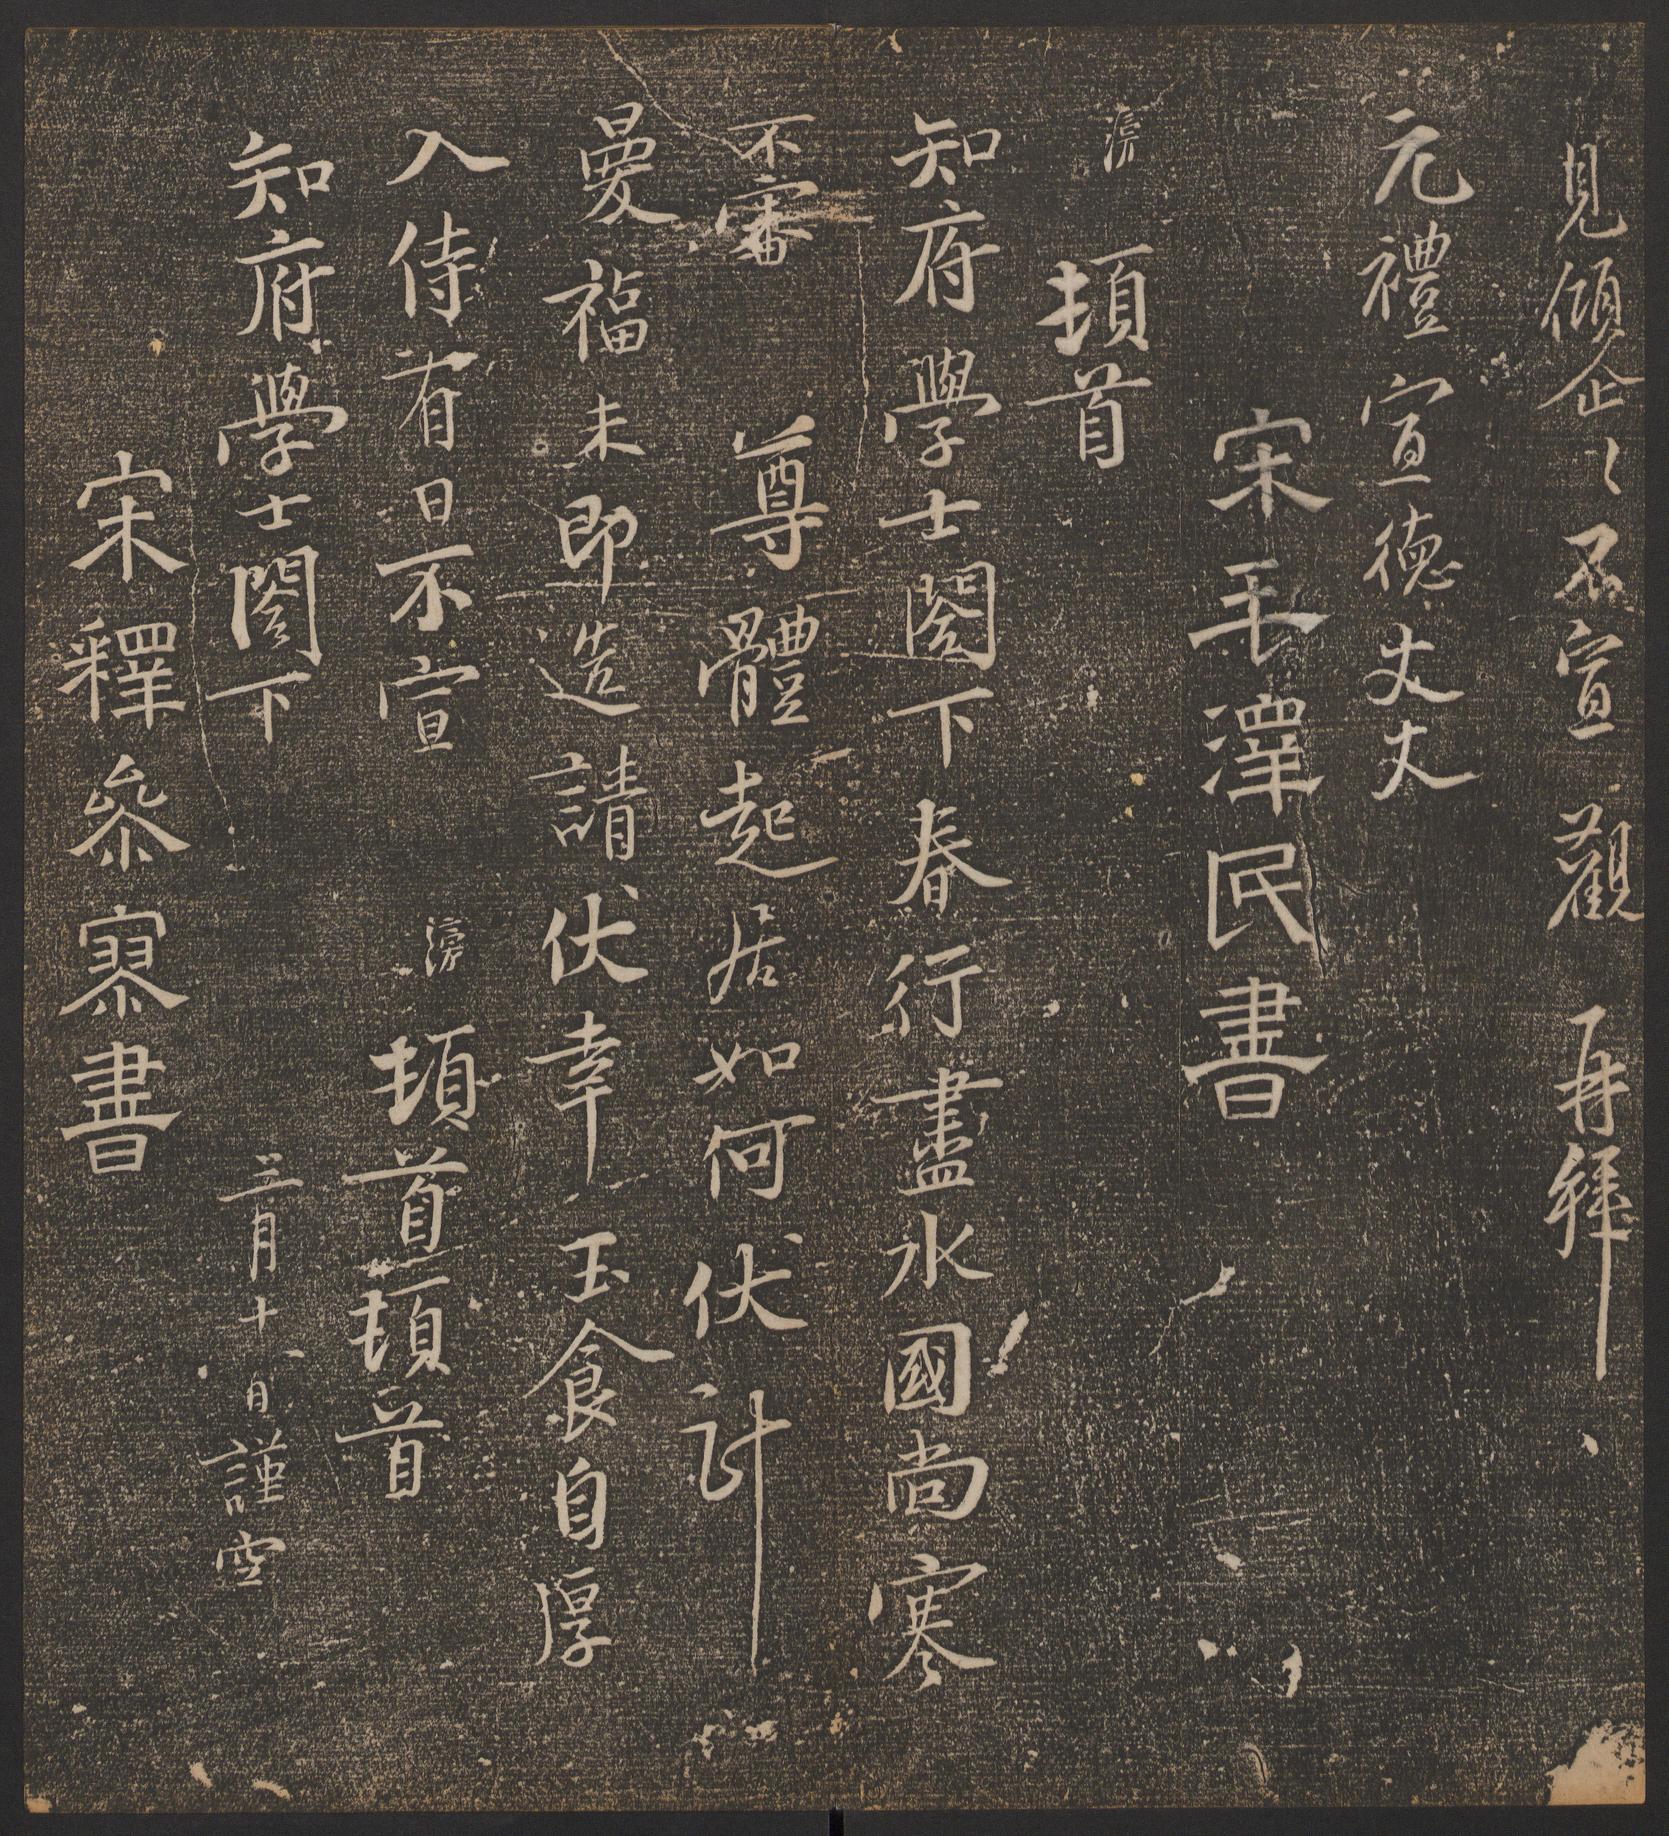 見傾企〻不宣 觀 再拜
元禮宣德丈丈
宋毛澤民書
滂 頓首
知府學士閣下春行盡水國尚寒
不審 尊體起居如何伏計
曼福未即造請伏幸玉食自厚
入侍有日不宣 滂 頓首頓首
知府學士閣下 三月十 日謹空
宋釋參寥書